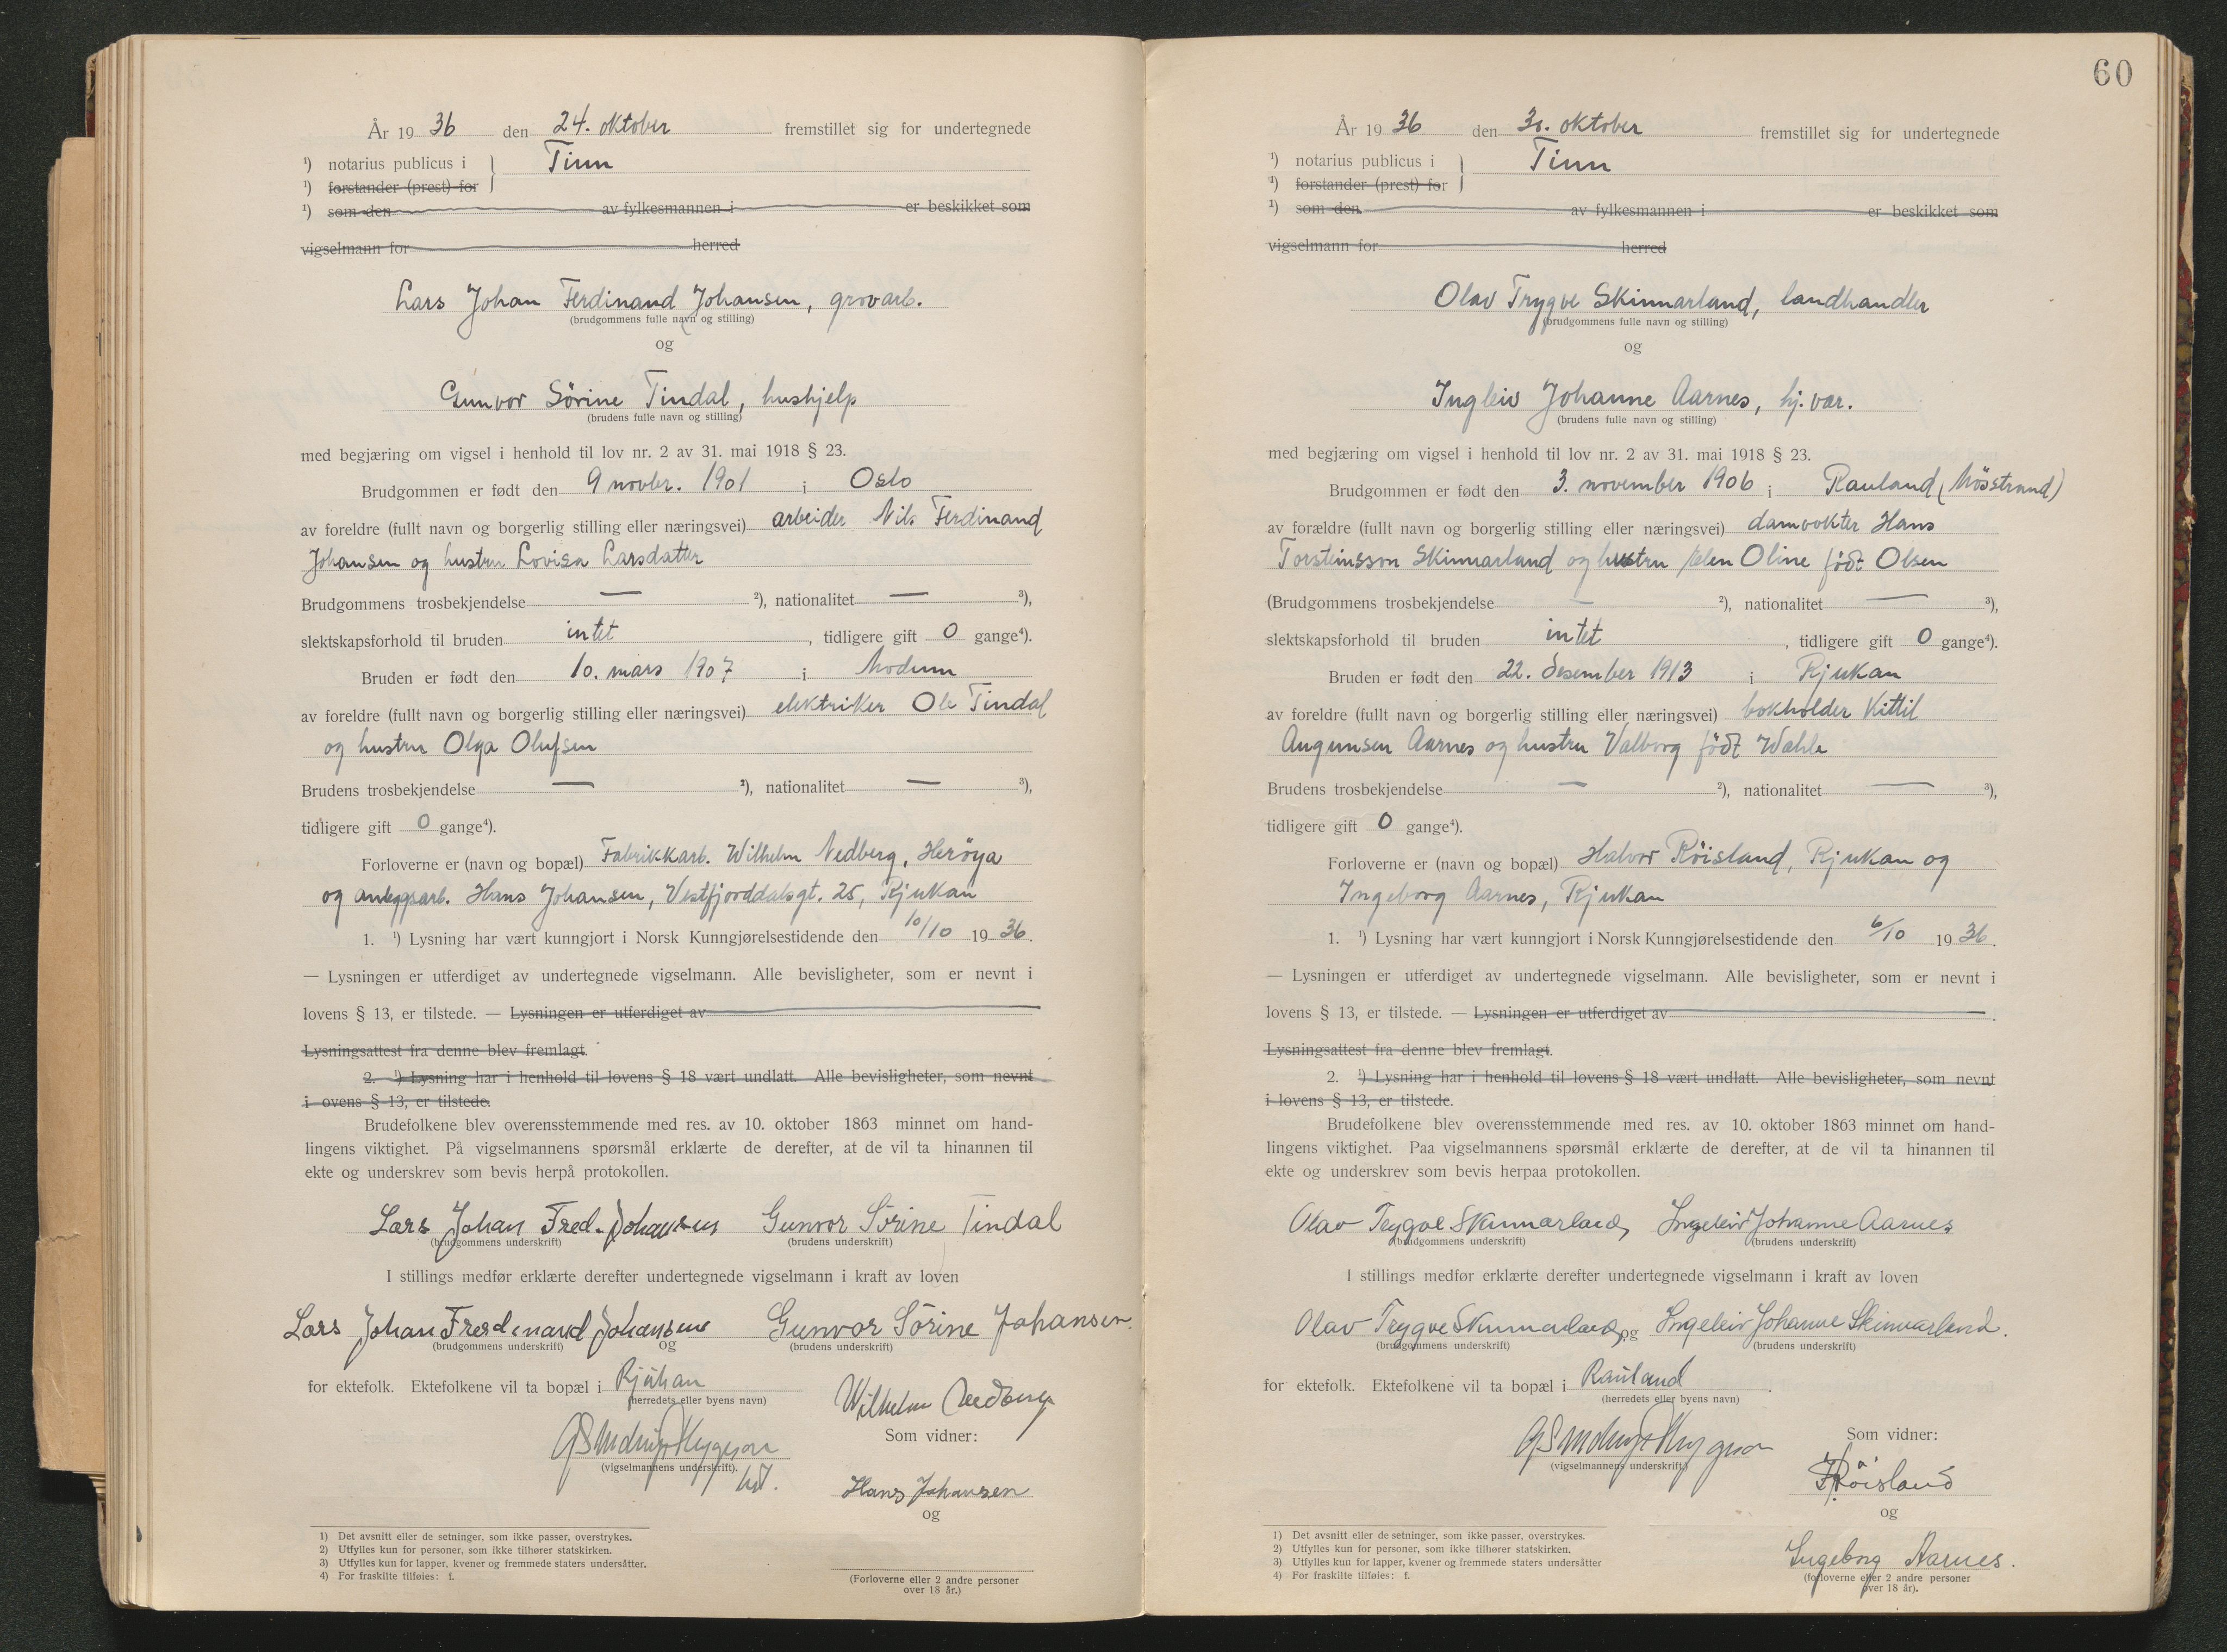 År 19 36 den 24. oktober fremstillet sig for undertegnede
¹) notarius publicus i } Tinn
¹) forstander (prest) for
¹) som den av fylkesmannen i er beskikket som
vigselmann for herred
Lars Johan Ferdinand Johansen, grovarb.
(brudgommens fulle navn og stilling)
og
Gunvor Sörine Tindal, hushjelp
(brudens fulle navn og stilling)
med begjæring om vigsel i henhold til lov nr. 2 av 31. mai 1918 § 23.
Brudgommen er født den 9 novbr. 1901 i Oslo
av foreldre (fullt navn og borgerlig stilling eller næringsvei) arbeider Nils Ferdinand
Johansen og hustru Lovisa Larsdatter
Brudgommens trosbekjendelse — ²), nationalitet — ³),
slektskapsforhold til bruden intet, tidligere gift 0 gange⁴).
Bruden er født den 10. mars 1907 i Modum
av foreldre (fullt navn og borgerlig stilling eller næringsvei) elektriker Ole Tindal
og hustru Olga Olufsen
Brudens trosbekjendelse — ²), nationalitet — ³),
tidligere gift 0 gange⁴).
Forloverne er (navn og bopæl) Fabrikkarb. Wilhelm Nedberg, Heröya
og anleggsarb. Hans Johansen, Vestfjorddalsgt. 25, Rjukan
1. ¹) Lysning har vært kunngjort i Norsk Kunngjørelsestidende den 10/10 19 36.
— Lysningen er utferdiget av undertegnede vigselmann. Alle bevisligheter, som er nevnt i
lovens § 13, er tilstede. — Lysningen er utferdiget av
Lysningsattest fra denne blev fremlagt.
2. ¹) Lysning har i henhold til lovens § 18 vært undlatt. Alle bevisligheter, som nevnt
i ovens § 13, er tilstede.
Brudefolkene blev overensstemmende med res. av 10. oktober 1863 minnet om hand-
lingens viktighet. På vigselmannens spørsmål erklærte de derefter, at de vil ta hinannen til
ekte og underskrev som bevis herpå protokollen.
Lars Johan Fred. Johansen Gunvor Sörine Tindal
(brudgommens underskrift) (brudens underskrift)
I stillings medfør erklærte derefter undertegnede vigselmann i kraft av loven
Lars Johan Freedinand Johansen og Gunvor Sörine Johansen.
(brudgommens underskrift) (brudens underskrift)
for ektefolk. Ektefolkene vil ta bopæl i Rjukan
(herredets eller byens navn)
Wilhelm Nedberg
Som vidner:
(vigselmannens underskrift).
Hans Johansen
og
1) Det avsnitt eller de setninger, som ikke passer, overstrykes.
2) Utfylles kun for personer, som ikke tilhører statskirken.
3) Utfylles kun for lapper, kvener og fremmede staters undersåtter.
4) For fraskilte tilføies: f.
(Forloverne eller 2 andre personer
over 18 år.)
60
År 19 36 den 30. oktober fremstillet sig for undertegnede
¹) notarius publicus i } Tinn
¹) forstander (prest) for
¹) som den av fylkesmannen i er beskikket som
vigselmann for herred
Olav Trygve Skinnarland, landhandler
(brudgommens fulle navn og stilling)
og
Ingleiv Johanne Aarnes, hj. vær.
(brudens fulle navn og stilling)
med begjæring om vigsel i henhold til lov nr. 2 av 31. mai 1918 § 23.
Brudgommen er født den 3. november 1906 i Rauland (Mösstrand)
av forældre (fullt navn og borgerlig stilling eller næringsvei) damvokter Hans
Torsteinsson Skinnarland og hustru Elen Oline födt Olsen
(Brudgommens trosbekjendelse — ²), nationalitet — ³),
slektskapsforhold til bruden intet, tidligere gift 0 gange⁴).
Bruden er født den 22. desember 1913 i Rjukan
av foreldre (fullt navn og borgerlig stilling eller næringsvei) bokholder Kittil
Augunsen Aarnes og hustru Valborg födt Wahle
Brudens trosbekjendelse — ²), nationalitet — ³),
tidligere gift 0 gange⁴).
Forloverne er (navn og bopæl) Halvor Röisland, Rjukan og
Ingeborg Aarnes, Rjukan
1. ¹) Lysning har vært kunngjort i Norsk Kunngjørelsestidende den 6/10 19 36.
— Lysningen er utferdiget av undertegnede vigselmann. Alle bevisligheter, som er nevnt i
lovens § 13, er tilstede. — Lysningen er utferdiget av.
Lysningsattest fra denne blev fremlagt.
2. ¹) Lysning har i henhold til lovens § 18 vært undlatt. Alle bevisligheter, som nevnt
i lovens § 13, er tilstede.
Brudefolkene blev overensstemmende med res. av 10. oktober 1863 minnet om hand-
lingens viktighet. Paa vigselmannens spørsmål erklærte de derefter, at de vil ta hinannen til
ekte og underskrev som bevis herpaa protokollen.
Olav Trygve Skinnarland, Ingeleiv Johanne Aarnes
(brudgommens underskrift) (brudens underskrift)
I stillings medfør erklærte derefter undertegnede vigselmann i kraft av loven
Olav Trygve Skinnarland og Ingeleiv Johanne Skinnarland.
(brudgommens underskrift) (brudens underskrift)
for ektefolk. Ektefolkene vil ta bopæl i Rauland.
(herredets eller byens navn)
Som vidner:
(vigselmannens underskrift)
H Röisland
og
Ingeborg Aarnes.
1) Det avsnitt eller de setninger, som ikke passer, overstrykes.
2) Utfylles kun for personer, som ikke tilhører statskirken.
3) Utfylles kun for lapper, kvener og fremmede staters undersåtter
4) For fraskilte tilføies: f.
(forloverne eller 2 andre personer
over 18 år).